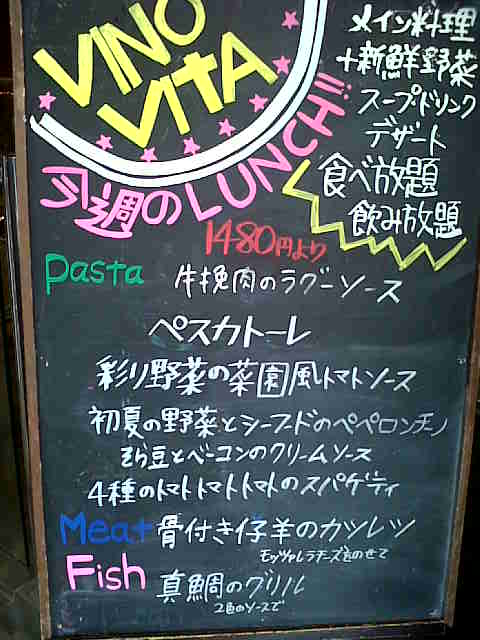 VINO
VITA
メイン料理
+新鮮野菜
スープ・ドリンク
デザート
食べ放題
飲み放題
今週のLUNCH!!!
1480円より
pasta
牛挽肉のラグーソース
ペスカトーレ
彩り野菜の菜園風トマトソース
初夏の野菜とシーフードのペペロンチーノ
そら豆とベーコンのクリームソース
4種のトマトトマトトマトのスパゲティ
Meat 骨付き仔羊のカツレツ
モッツァレラチーズをのせて
Fish 真鯛のグリル
2色のソースで